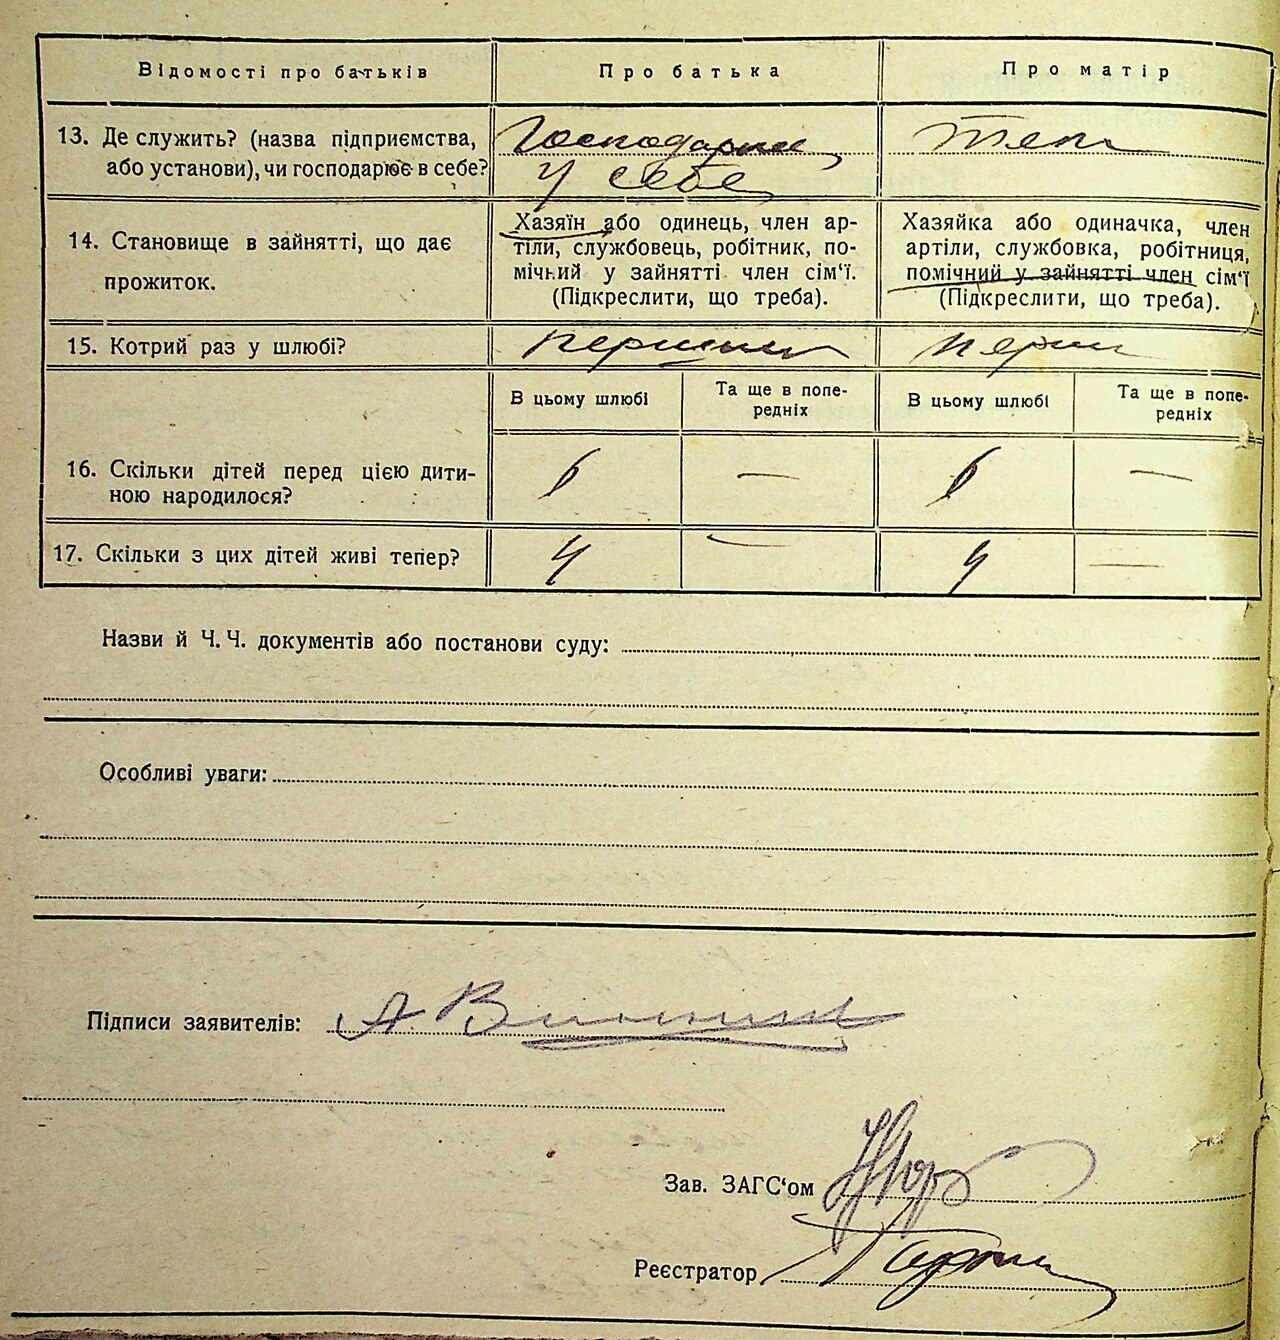 Відомості про батьків
Про батька
Про матір
13. Де служить? (назва підприємства,
або установи), чи господарює в себе?
Господарює
у себе
Теж
14. Становище в зайнятті, що дає
прожиток.
Хазяїн або одинець, член ар-
тіли, службовець, робітник, по-
мічний у зайнятті член сім‘ї.
(Підкреслити, що треба).
Хазяйка або одиначка, член
артіли, службовка, робітниця,
помічний у зайнятті член сім‘ї
(Підкреслити, що треба).
15. Котрий раз у шлюбі?
перший
В цьому шлюбі
Та ще в попе-
редніх
В цьому шлюбі
Та ще в попе-
редніх
16. Скільки дітей перед цією дити-
ною народилося?
6 — 6 —
17. Скільки з цих дітей живі тепер?
4 — 4 —
Назви й Ч. Ч. документів або постанови суду:
Особливі уваги:
Підписи заявителів: А.
Зав. ЗАГС‘ом
Реєстратор